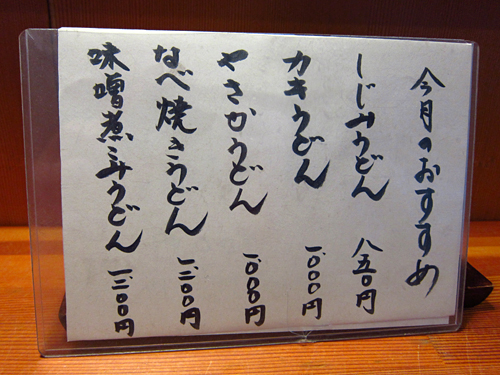 今月のおすすめ
しじみうどん 八五〇円
カキうどん 一、〇〇〇円
やさかうどん 一、〇〇〇円
なべ焼きうどん 一、二〇〇円
味噌煮こみうどん 一、二〇〇円